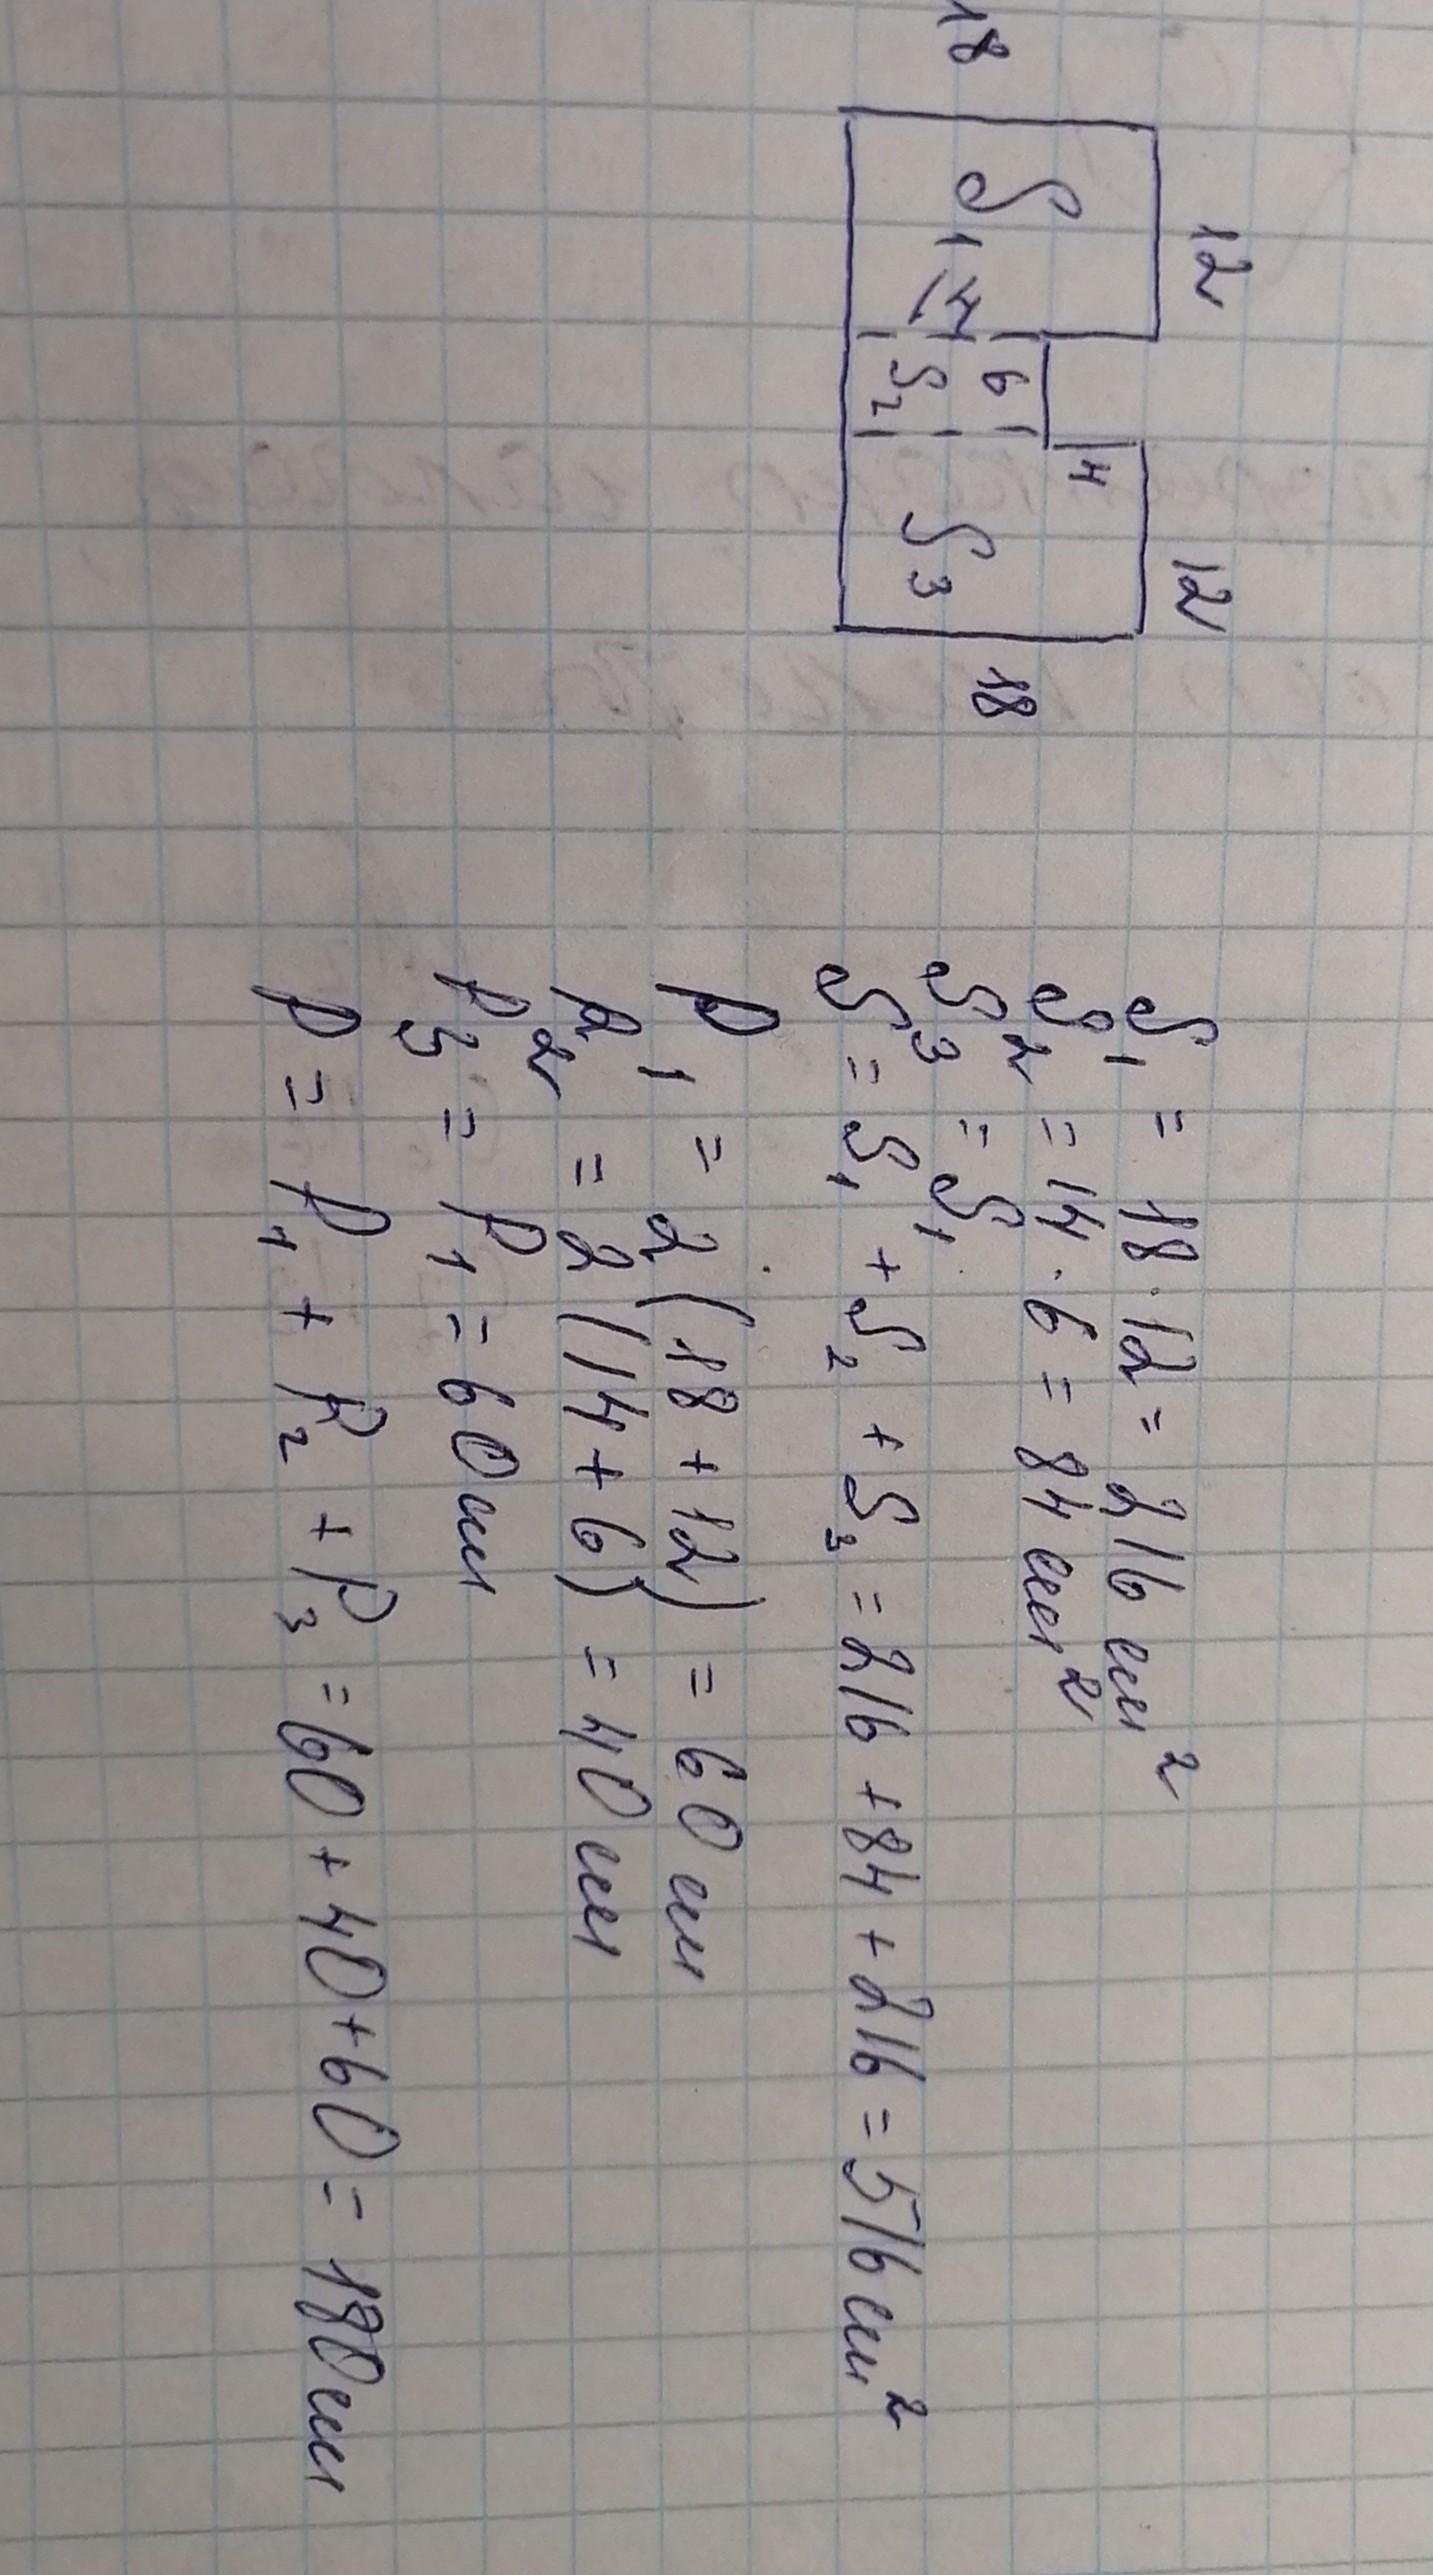 12 12
18 S₁ 14 6 S₂ 4 S₃ 18
S₁ = 18 · 12 = 216 см²
S₂ = 14 · 6 = 84 см²
S₃ = S₁
S = S₁ + S₂ + S₃ = 216 + 84 + 216 = 516 см²
P₁ = 2 (18 + 12) = 60 см
P₂ = 2 (14 + 6) = 40 см
P₃ = P₁ = 60 см
P = P₁ + P₂ + P₃ = 60 + 40 + 60 = 180 см